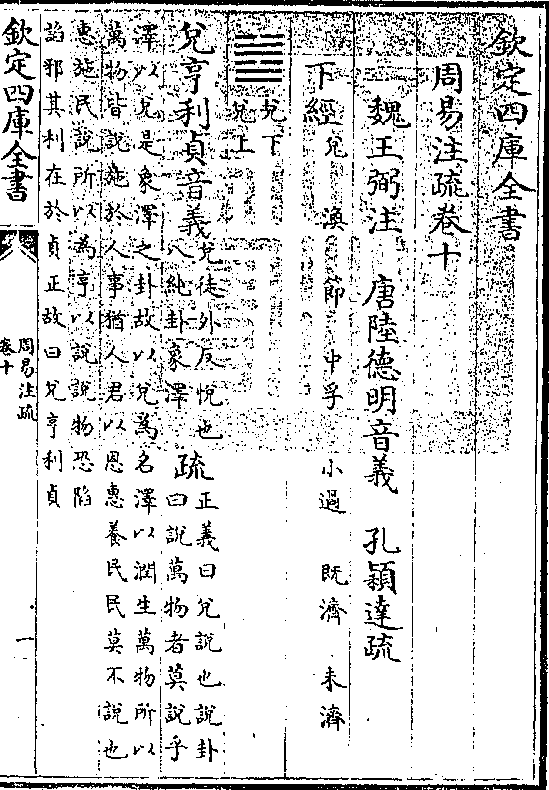 欽定四庫全書
周易注疏卷十
魏王弼注 唐陸德明音義 孔穎達疏
下經 兌 渙 節 中孚 小過 既濟 未濟
兌下
兌上
兌亨利貞音義 兌徒外反悅也
八純卦象澤 疏 正義曰兌說也說卦
曰說萬物者莫說乎
澤以兌是象澤之卦故以兌為名澤以潤生萬物所以
萬物皆說施於人事猶人君以恩惠養民民莫不說也
惠施民說所以為亨以說說物恐陷
諂邪其利在於貞正故曰兌亨利貞
欽定四庫全書
周易注疏
卷十
一